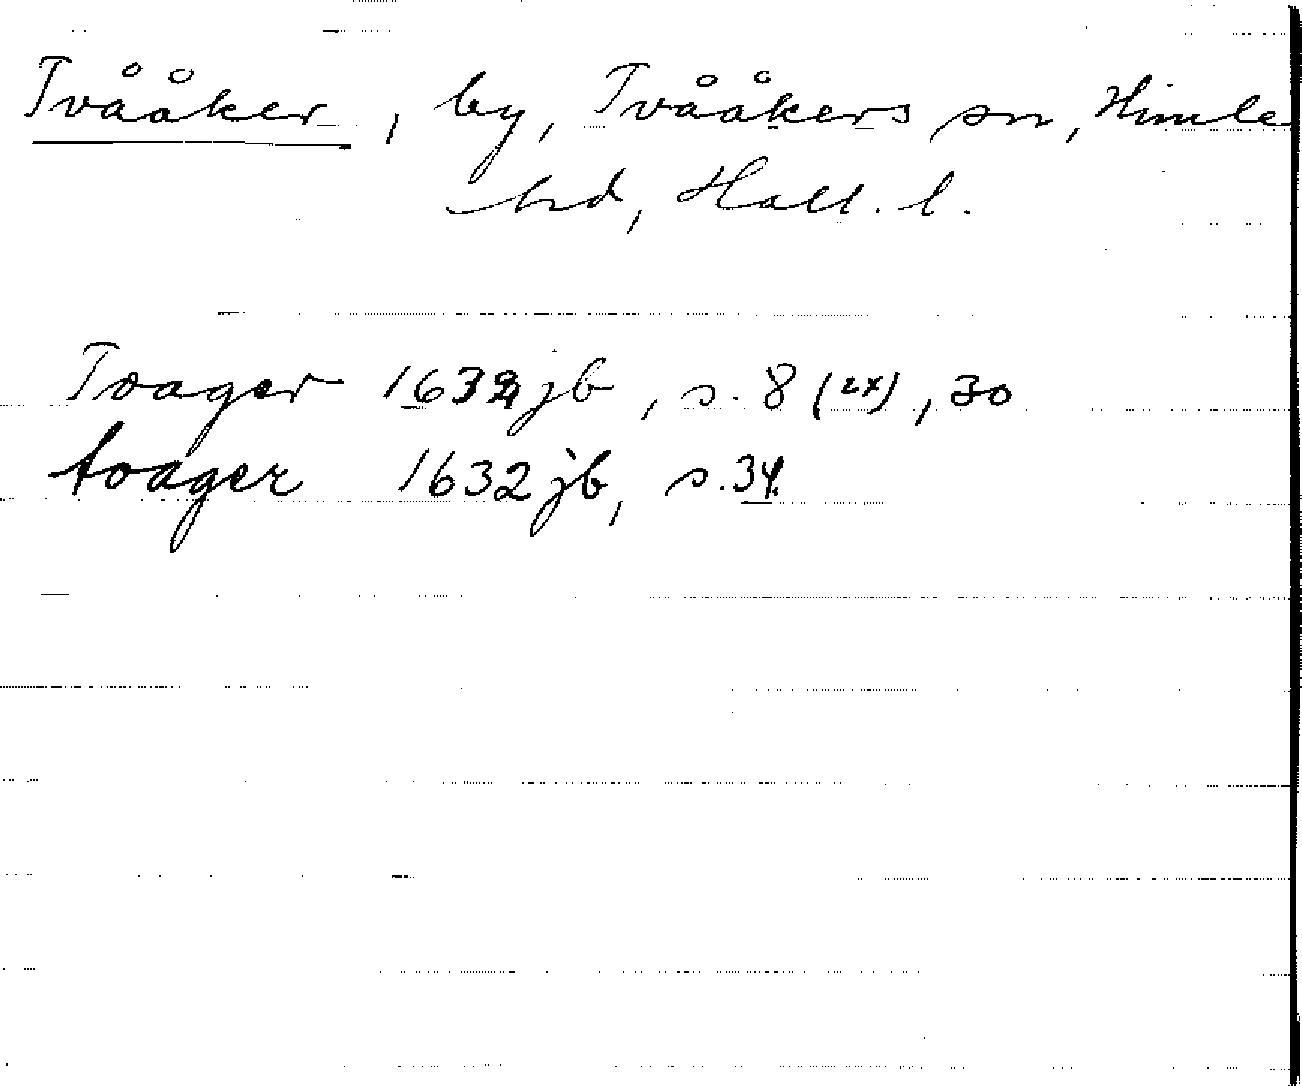 Tvååker, by, Tvååkers sn, Himle
hd, Hall. l.
Tvager 1632 jb, s. 8 (2x), 30
tvager 1632 jb, s. 34.